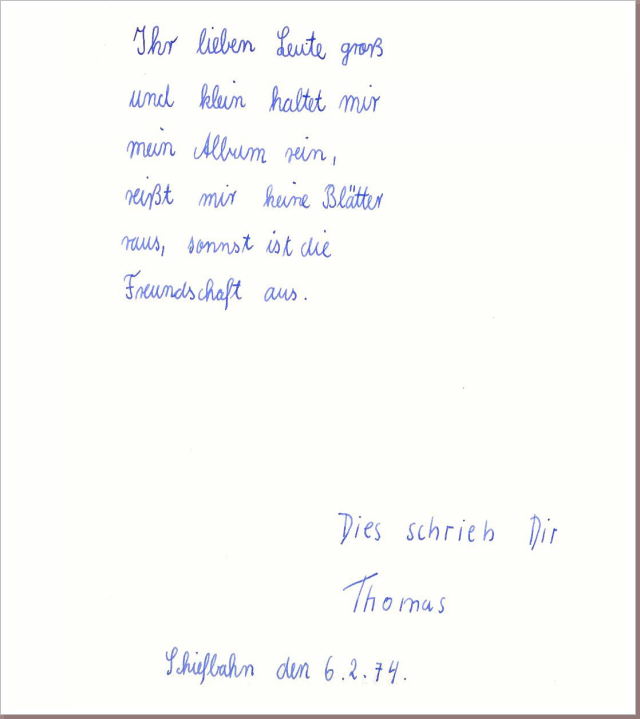 Ihr lieben Leute groß
und klein haltet mir
mein Album rein,
reißt mir keine Blätter
raus, sonnst ist die
Freundschaft aus.
Dies schrieb Dir
Thomas
Schiefbahn den 6.2.74.